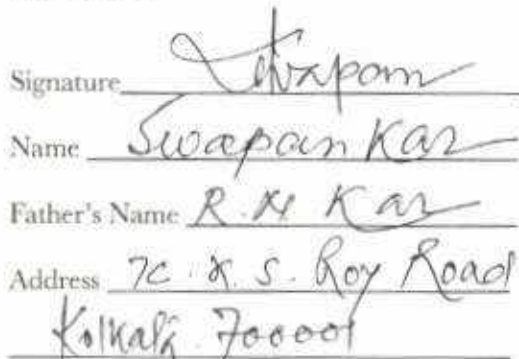 Signature Swapan
Name Swapan Kar
Father's Name R. N Kar
Address 7C. K. S. Roy Road
Kolkata 700001